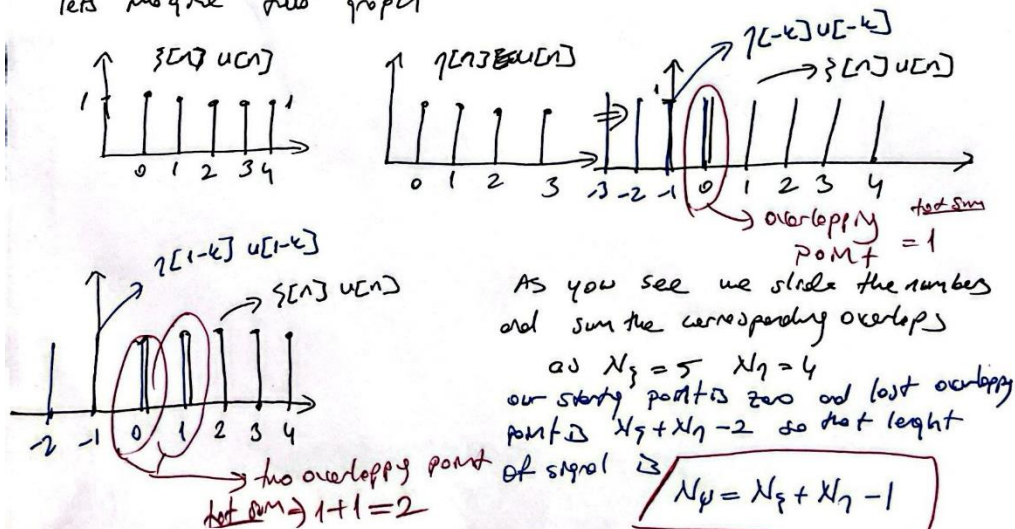 lets imagine two graphs
ξ[n] u[n]
1
1
0 1 2 3 4
η[n] u[n]
0 1 2 3
η[-k] u[-k]
ξ[n] u[n]
⇒
1
-3 -2 -1 0 1 2 3 4
overlapping point
tot sum = 1
η[1-k] u[1-k]
ξ[n] u[n]
-2 -1 0 1 2 3 4
two overlappıng point
tot sum ⇒ 1+1=2
As you see we slide the numbers
and sum the corresponding overlaps
as Nξ = 5 Nη = 4
our startıg point is zero and last overlappıg
point is Nξ+Nη-2 so that lenght
of signal is
Nψ = Nξ + Nη - 1